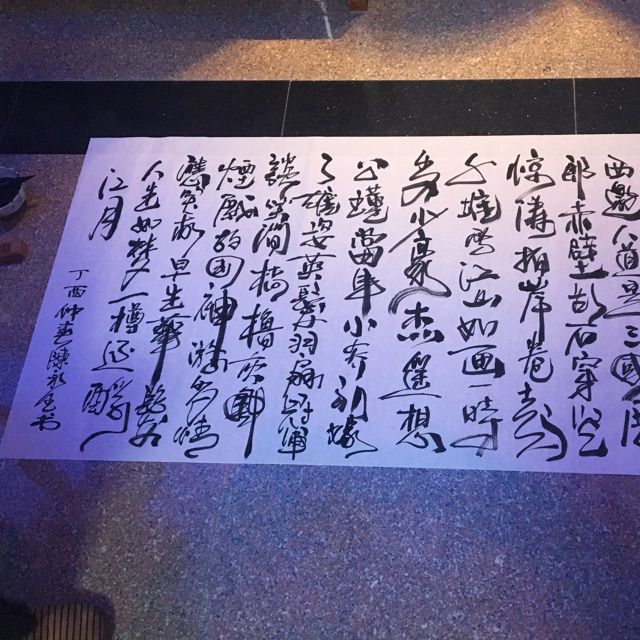 西邊人道是三國周
郎赤壁乱石穿空
惊濤拍岸卷起
千堆雪江山如画一時
多少豪杰遥想
公瑾當年小乔初嫁
了雄姿英發羽扇綸巾
談笑間樯櫓灰飛
煙滅故國神游多情
應笑我早生華髮
人生如梦一樽还酹
江月
丁酉仲春陳